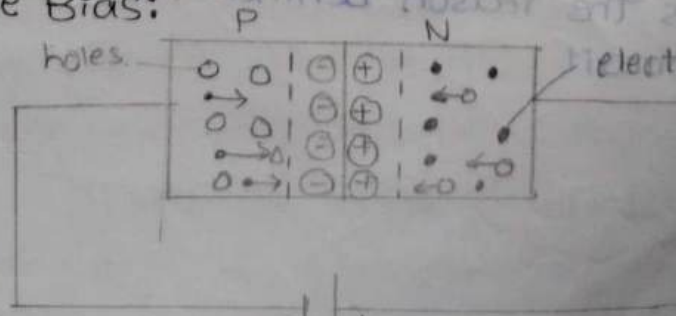 e Bias:
P N
holes elect